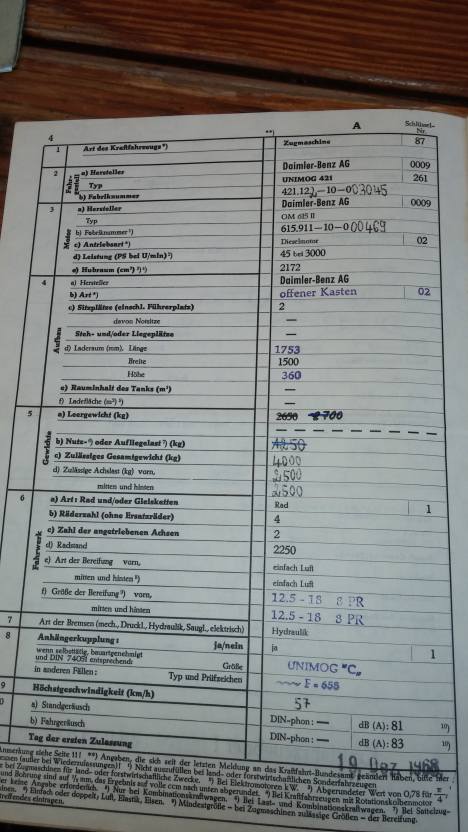 4 **) A Schlüssel-Nr.
1 Art des Kraftfahrzeugs*) Zugmaschine 87
2 Fahrgestell a) Hersteller Daimler-Benz AG 0009
Typ UNIMOG 421 261
b) Fabriknummer 421.122-10-003045
3 Motor a) Hersteller Daimler-Benz AG 0009
Typ OM 615 II
b) Fabriknummer¹) 615.911-10-000469
c) Antriebsart*) Dieselmotor 02
d) Leistung (PS bei U/min)²) 45 bei 3000
e) Hubraum (cm³) ³) ⁴) 2172
4 Aufbau a) Hersteller Daimler-Benz AG
b) Art*) offener Kasten 02
c) Sitzplätze (einschl. Führerplatz) 2
davon Notsitze —
Steh- und/oder Liegeplätze —
d) Laderaum (mm), Länge 1753
Breite 1500
Höhe 360
e) Rauminhalt des Tanks (m³) —
f) Ladefläche (m²) ⁵) —
5 Gewichte a) Leergewicht (kg) 2650 2700
— — — — — — — —
b) Nutz-⁶) oder Aufliegelast ⁷) (kg) 1250
c) Zulässiges Gesamtgewicht (kg) 4000
d) Zulässige Achslast (kg) vorn, 2500
mitten und hinten 2500
6 Fahrwerk a) Art: Rad und/oder Gleisketten Rad 1
b) Räderzahl (ohne Ersatzräder) 4
c) Zahl der angetriebenen Achsen 2
d) Radstand 2250
e) Art der Bereifung vorn, einfach Luft
mitten und hinten ⁸) einfach Luft
f) Größe der Bereifung ⁹) vorn, 12.5-18 8 PR
mitten und hinten 12.5-18 8 PR
7 Art der Bremsen (mech., Druckl., Hydraulik, Saugl., elektrisch) Hydraulik
8 Anhängerkupplung: ja/nein ja 1
wenn selbsttätig, bauartgenehmigt
und DIN 74051 entsprechend: Größe UNIMOG "C"
in anderen Fällen: Typ und Prüfzeichen F = 655
9 Höchstgeschwindigkeit (km/h) 57
a) Standgeräusch DIN-phon: — dB (A): 81 10)
b) Fahrgeräusch DIN-phon: — dB (A): 83 10)
Tag der ersten Zulassung 19. Dez. 1968
Anmerkung siehe Seite 11! **) Angaben, die sich seit der letzten Meldung an das Kraftfahrt-Bundesamt geändert haben, bitte hier
(außer bei Wiederzulassungen)! ¹) Nicht auszufüllen bei land- oder forstwirtschaftlichen Sonderfahrzeugen
bei Zugmaschinen für land- oder forstwirtschaftliche Zwecke. ²) Bei Elektromotoren kW. ³) Abgerundeter Wert von 0,78 für π/4,
und Bohrung sind auf ½ mm, das Ergebnis auf volle ccm nach unten abgerundet. ⁴) Bei Kraftfahrzeugen mit Rotationskolbenmotor
keine Angabe erforderlich. ⁵) Nur bei Kombinationskraftwagen. ⁶) Bei Last- und Kombinationskraftwagen. ⁷) Bei Sattelzug-
⁸) Einfach oder doppelt; Luft, Elastik, Eisen. ⁹) Mindestgröße – bei Zugmaschinen zulässige Größen – der Bereifung.
treffendes eintragen.